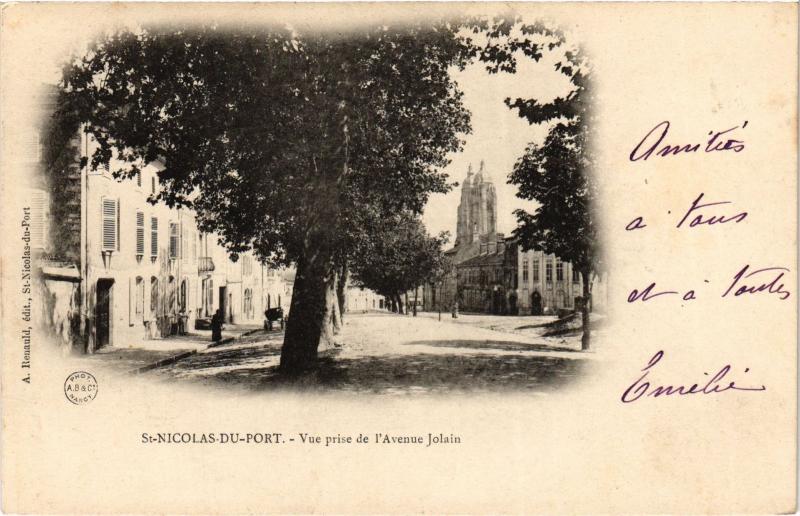 Amitiés
a tous
et à toutes
Emélie
A. Renauld, édit., St-Nicolas-du-Port
PHOT.
A.B & Cie
NANCY
St-NICOLAS-DU-PORT. - Vue prise de l'Avenue Jolain